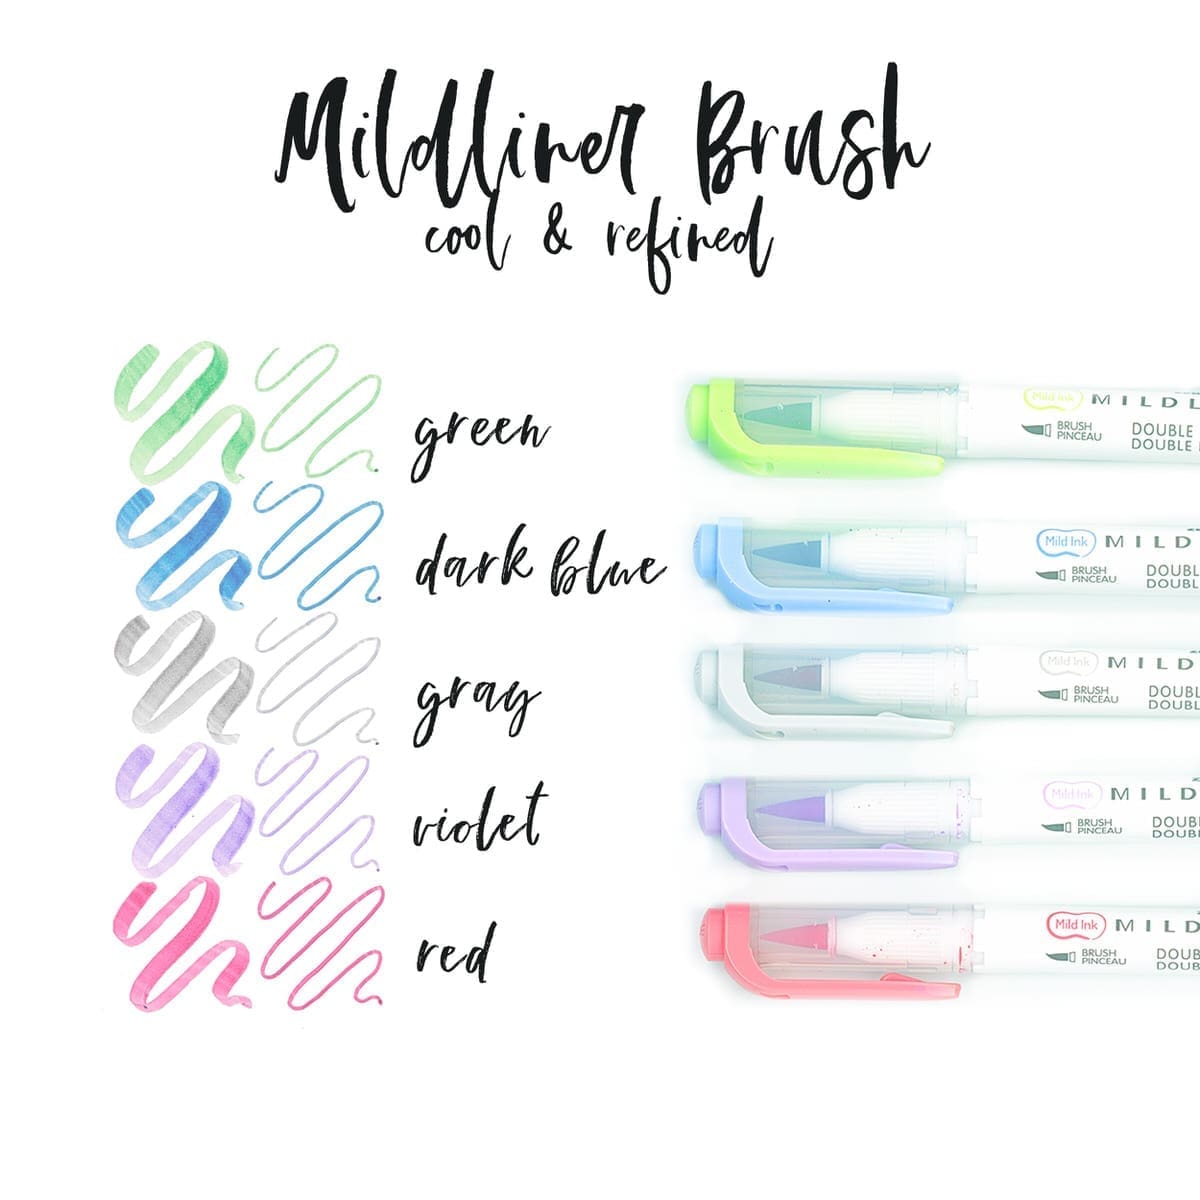 Mildliner Brush
cool & refined
green
Mild Ink MILDL
BRUSH
PINCEAU
DOUBLE
DOUBLE
dark blue
Mild Ink MILD
BRUSH
PINCEAU
DOUBL
DOUBL
gray
Mild Ink MILD
BRUSH
PINCEAU
DOUBL
DOUBL
violet
Mild Ink MILD
BRUSH
PINCEAU
DOUB
DOUB
red
Mild Ink MILD
BRUSH
PINCEAU
DOUB
DOUB